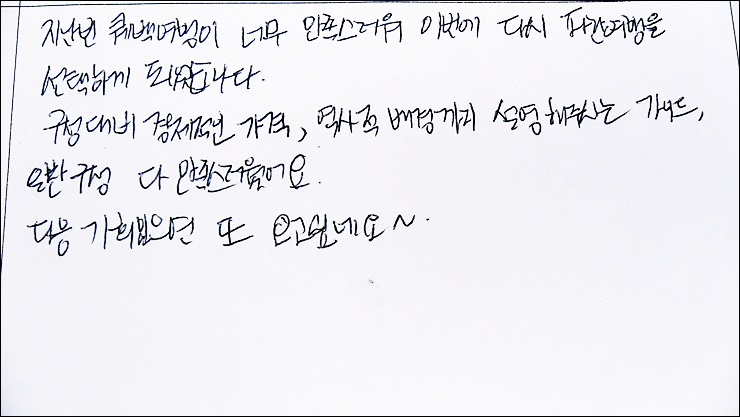 지난번 퀘백여행이 너무 만족스러워 이번에 다시 파란여행을
선택하게 되었습니다.
구성대비 경제적인 가격, 역사적 배경까지 설명해주시는 가이드,
일반구성 다 만족스러웠어요.
다음 기회있으면 또 오고싶네요~.